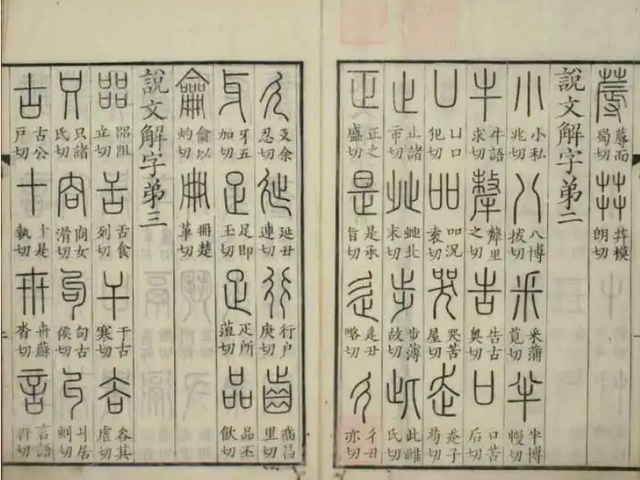 蓐 蓐而蜀切 茻 茻模朗切
說文解字第二
小 小私兆切 八 八博拔切 釆 釆蒲莧切 半 半博幔切
牛 牛語求切 犛 犛里之切 告 告古奧切 口 口苦后切
凵 凵口犯切 吅 吅況袁切 哭 哭苦屋切 走 走子苟切
止 止諸市切 癶 癶北末切 步 步薄故切 此 此雌氏切
正 正之盛切 是 是承旨切 辵 辵丑略切 彳 彳丑亦切
廴 廴余忍切 㢟 㢟丑連切 行 行戶庚切 齒 齒昌里切
牙 牙五加切 足 足即玉切 疋 疋所菹切 品 品丕飲切
龠 龠以灼切 冊 冊楚革切
說文解字第三
㗊 㗊阻立切 舌 舌食列切 干 干古寒切 𧮫 𧮫其虐切
只 只諸氏切 㕯 㕯女滑切 句 句古侯切 丩 丩居虯切
古 古公戶切 十 十是執切 卅 卅蘇沓切 言 言語軒切